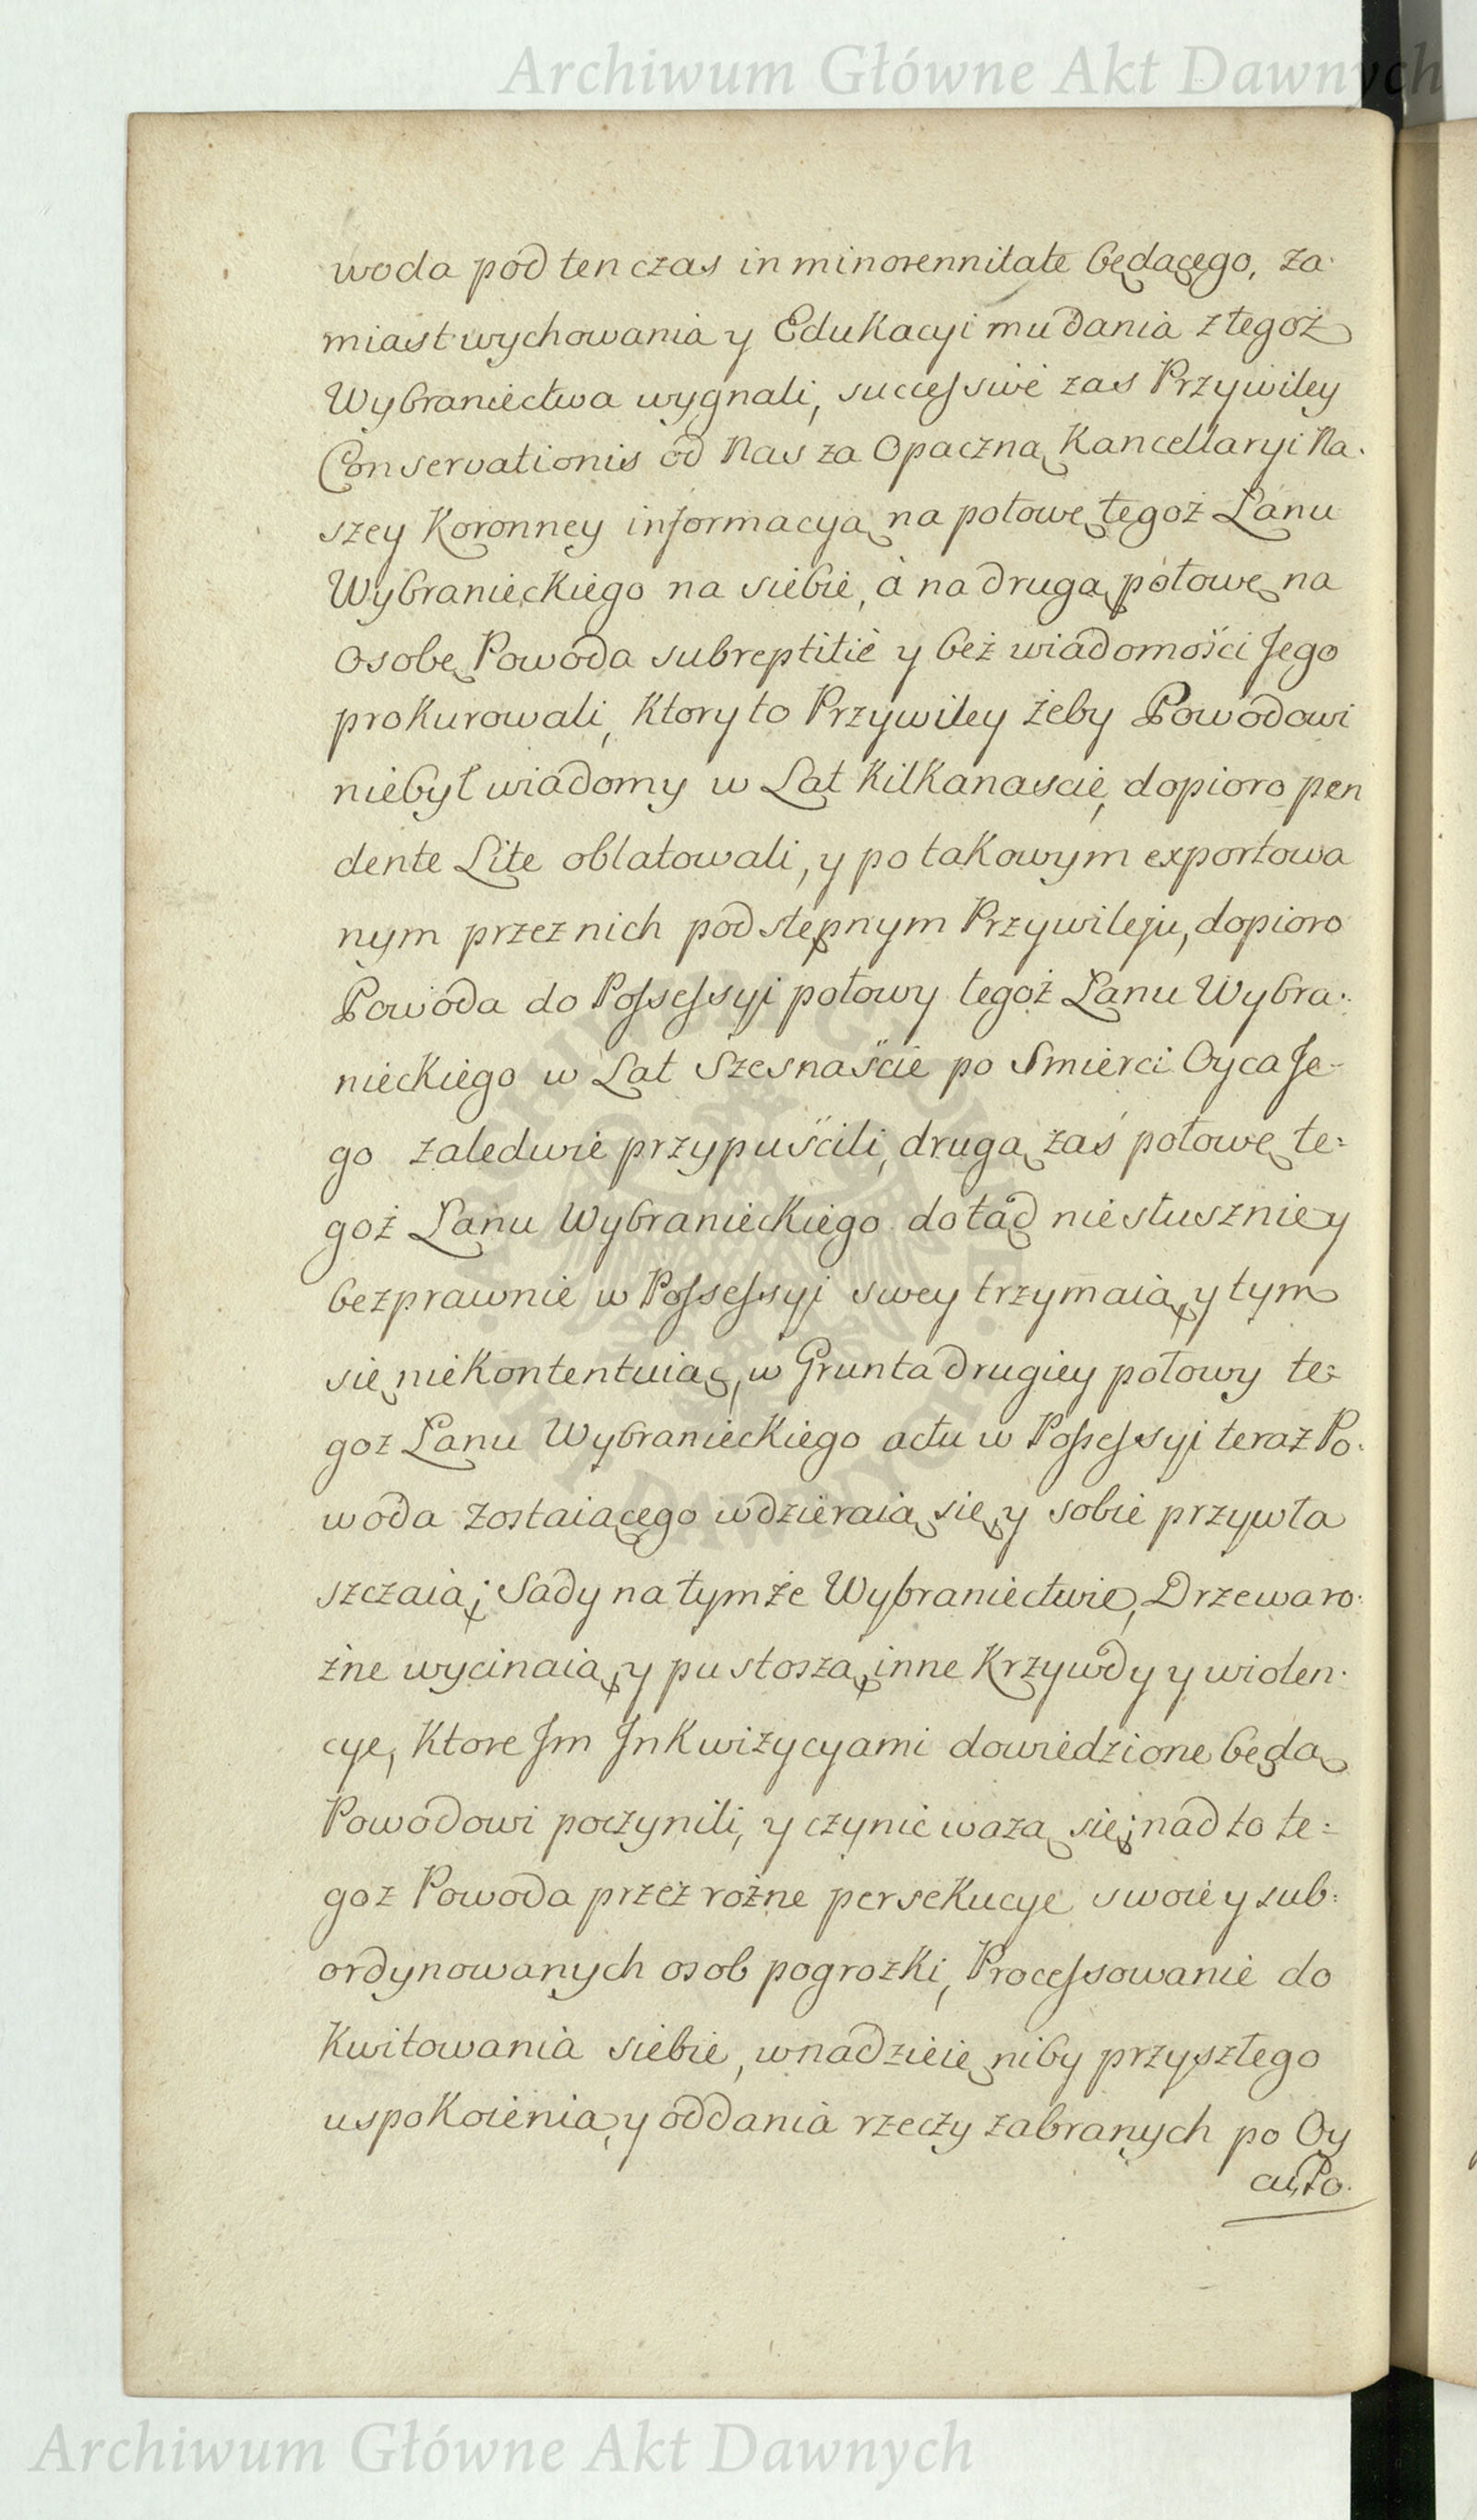 Archiwum Główne Akt Dawnych
woda pod ten czas in minorennitate będącego, za-
miast wychowania y Edukacyi mu dania z tegoż
Wybraniectwa wygnali, successive zas Przywiley
Conservationis od Nas za Opaczną Kancellaryi Na-
szey Koronney informacyą na połowę tegoż Łanu
Wybranieckiego na siebie, à na drugą połowę na
Osobę Powoda subreptitiè y beż wiadomości Jego
prokurowali, ktory to Przywiley żeby Powodowi
niebył wiadomy w Lat kilkanascie, dopioro pen
dente Lite oblatowali, y po takowym exportowa
nym przez nich podstępnym Przywileju, dopioro
Powoda do Possessyi połowy tegoż Łanu Wybra-
nieckiego w Lat Szesnaście po Smierci Oyca Je-
go zaledwie przypuścili, drugą zaś połowę te=
goż Łanu Wybranieckiego dotąd niesłusznie y
bezprawnie w Possessyi swey trzymaią, y tym
się niekontentuiąc, w Grunta drugiey połowy te=
goz Łanu Wybranieckiego actu w Possessyi teraz Po-
woda zostaiącego wdzieraią się, y sobie przywła
szczaią; Sady na tymże Wybraniectwie, Drzewa ro-
żne wycinaią, y pustoszą, inne Krzywdy y wiolen-
cye, ktore Jm Jnkwizycyami dowiedzione będą
Powodowi poczynili, y czynić ważą się; nad to te=
goz Powoda przez rożne persekucye swoie y sub=
ordynowanych osob pogrozki, Processowanie do
Kwitowania siebie, w nadzieię niby przyszłego
uspokoienia, y oddania rzeczy zabranych po Oy
cu Po-
Archiwum Główne Akt Dawnych